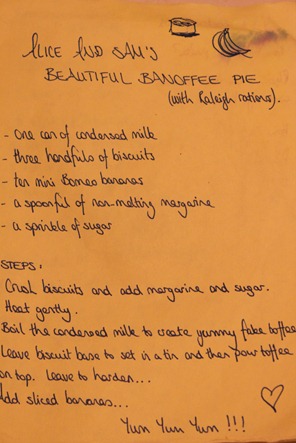 ALICE AND SAM'S
BEAUTIFUL BANOFFEE PIE
(with Raleigh rations).
- one can of condensed milk
- three handfuls of biscuits
- ten mini Borneo bananas
- a spoonful of non-melting margarine
- a sprinkle of sugar
STEPS:
Crush biscuits and add margarine and sugar.
Heat gently.
Boil the condensed milk to create yummy fake toffee
Leave biscuit base to set in a tin and then pour toffee
on top. Leave to harden...
Add sliced bananas...
Yum Yum Yum !!!